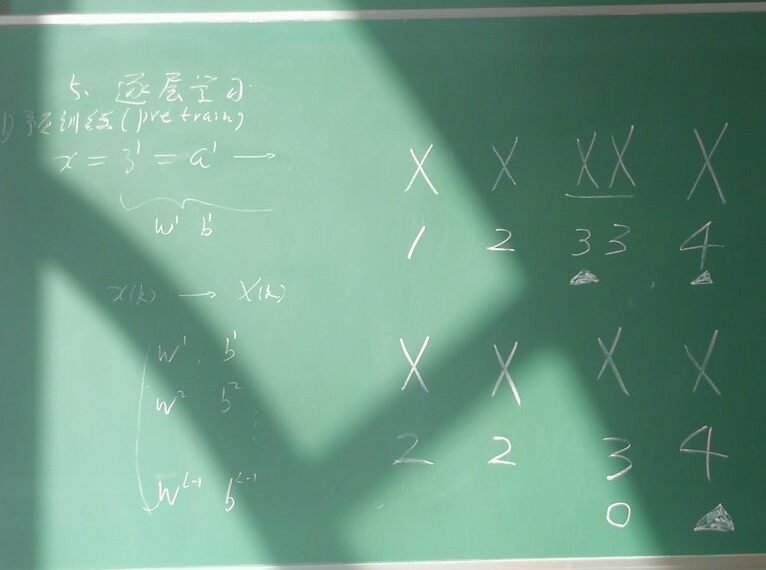 5、逐层学习
1)预训练(pretrain)
x = z¹ = a¹ →
w¹ b¹
x(k) → X(k)
w¹, b¹
w² b²
⋮
w^(L-1) b^(L-1)
X X X X X
1 2 3 3 4
X X X X
2 2 3 4
0